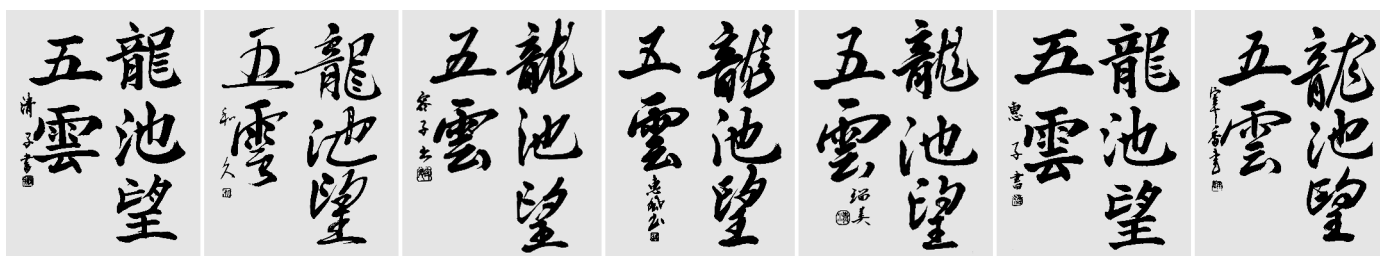 龍池望
五雲
清子書
龍池望
五雲
和久
龍池望
五雲
容子書
龍池望
五雲
龍池望
五雲
瑠美
龍池望
五雲
恵子書
龍池望
五雲